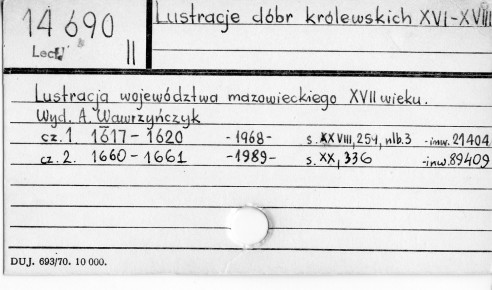 14 690
Lect.
II
Lustracje dóbr królewskich XVI-XVIII
Lustracja województwa mazowieckiego XVII wieku.
Wyd. A. Wawrzyńczyk
cz. 1. 1617 - 1620 -1968- s. XXVIII, 254, nlb. 3 -inw. 21404
cz. 2. 1660 - 1661 -1989- s. XX, 336 -inw. 89409
DUJ. 693/70. 10 000.